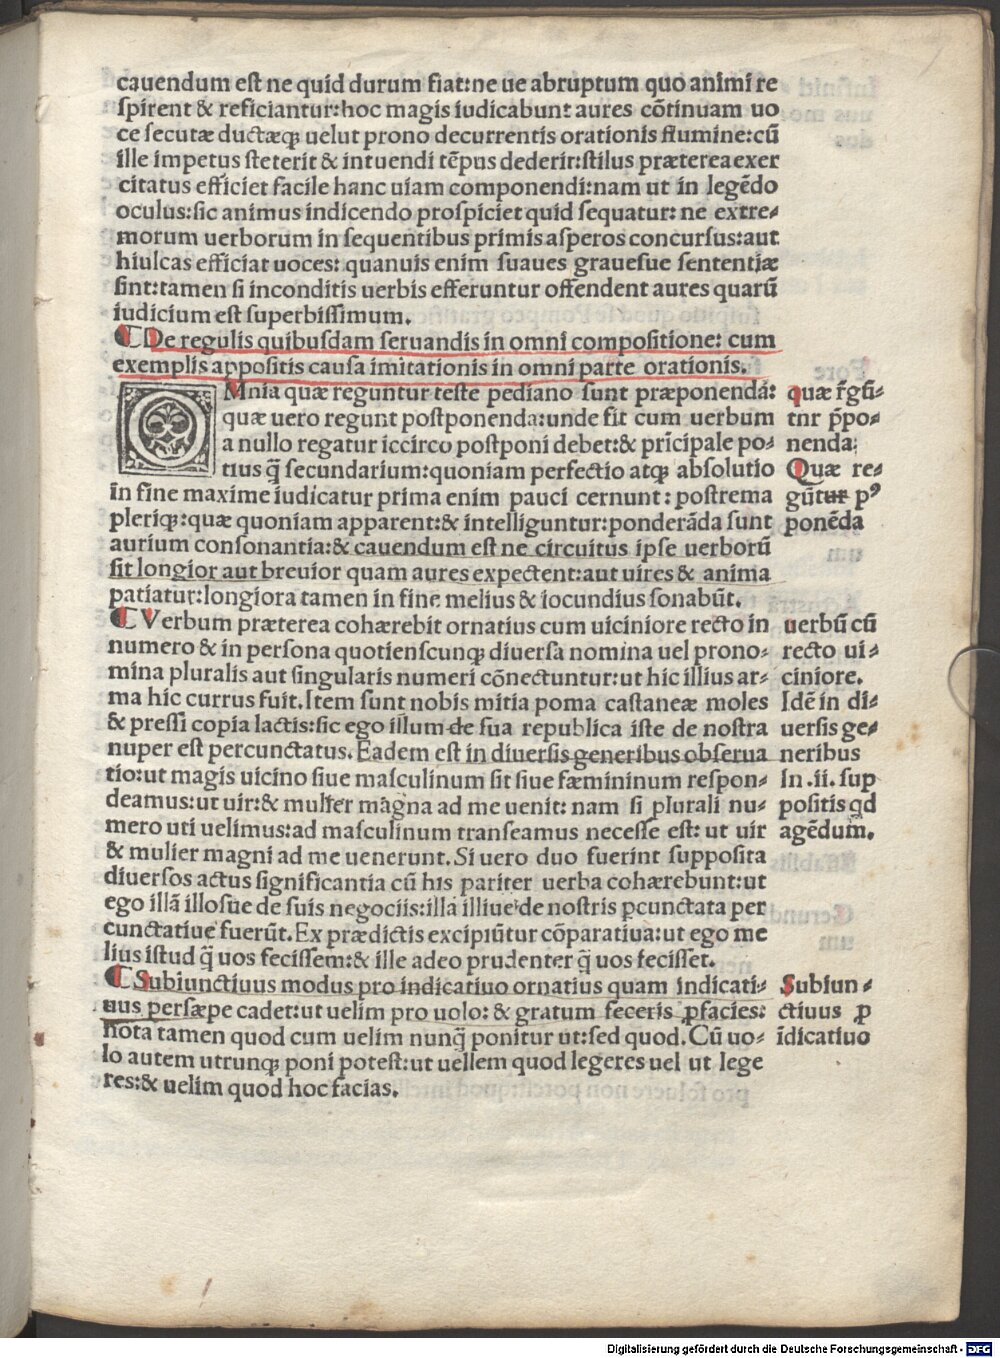 cauendum eſt ne quid durum fiat:ne ue abruptum quo animi re
ſpirent & reficiantur:hoc magis iudicabunt aures cõtinuam uo
ce ſecutæ ductæqꝫ uelut prono decurrentis orationis flumine:cũ
ille impetus ſteterit & intuendi tẽpus dederit:ſtilus præterea exer
citatus efficiet facile hanc uiam componendi:nam ut in legẽdo
oculus:ſic animus indicendo proſpiciet quid ſequatur: ne extre⸗
morum uerborum in ſequentibus primis aſperos concurſus:aut
hiulcas efficiat uoces: quanuis enim ſuaues graueſue ſententiæ
ſint:tamen ſi inconditis uerbis efferuntur offendent aures quarũ
iudicium eſt ſuperbiſſimum.
¶ De regulis quibuſdam ſeruandis in omni compoſitione: cum
exemplis appoſitis cauſa imitationis in omni parte orationis.
OMnia quæ reguntur teſte pediano ſunt præponenda:
quæ uero regunt poſtponenda:unde fit cum uerbum
a nullo regatur iccirco poſtponi debet:& prĩcipale po⸗
tius q̃ ſecundarium:quoniam perfectio atqꝫ abſolutio
in fine maxime iudicatur prima enim pauci cernunt: poſtrema
pleriqꝫ:quæ quoniam apparent:& intelliguntur:ponderãda ſunt
aurium conſonantia:& cauendum eſt ne circuitus ipſe uerborũ
ſit longior aut breuior quam aures expectent:aut uires & anima
patiatur:longiora tamen in fine melius & iocundius ſonabũt.
¶ Verbum præterea cohærebit ornatius cum uiciniore recto in
numero & in perſona quotienſcunqꝫ diuerſa nomina uel prono⸗
mina pluralis aut ſingularis numeri cõnectuntur:ut hic illius ar⸗
ma hic currus fuit.Item ſunt nobis mitia poma caſtaneæ moles
& preſſi copia lactis:ſic ego illum de ſua republica iſte de noſtra
nuper eſt percunctatus.Eadem eſt in diuerſis generibus obſerua
tio:ut magis uicino ſiue maſculinum ſit ſiue fæmininum reſpon⸗
deamus:ut uir:& mulier magna ad me uenit: nam ſi plurali nu⸗
mero uti uelimus:ad maſculinum tranſeamus neceſſe eſt: ut uir
& mulier magni ad me uenerunt.Si uero duo fuerint ſuppoſita
diuerſos actus ſignificantia cũ his pariter uerba cohærebunt:ut
ego illã illoſue de ſuis negociis:illã illiue de noſtris ꝑcunctata per
cunctatiue fuerũt.Ex prædictis excipiũtur cõparatiua:ut ego me
lius iſtud q̃ uos feciſſem:& ille adeo prudenter q̃ uos feciſſet.
¶ Subiunctiuus modus pro indicatiuo ornatius quam indicati⸗
uus perſæpe cadet:ut uelim pro uolo: & gratum feceris ꝓfacies:
nota tamen quod cum uelim nunq̃ ponitur ut:ſed quod.Cũ uo⸗
lo autem utrunqꝫ poni poteſt:ut uellem quod legeres uel ut lege
res:& uelim quod hoc facias.
quæ r̃gũ⸗
tnr p̃po⸗
nenda:
Quæ re⸗
gũtur pꝰ
ponẽda
uerbũ cũ
recto ui⸗
ciniore.
Idẽ in di⸗
uerſis ge⸗
neribus
In .ii. ſup
poſitis qd
agẽdum.
Subiun⸗
ctiuus ꝓ
ĩdicatiuo
Digitalisierung gefördert durch die Deutsche Forschungsgemeinschaft - DFG